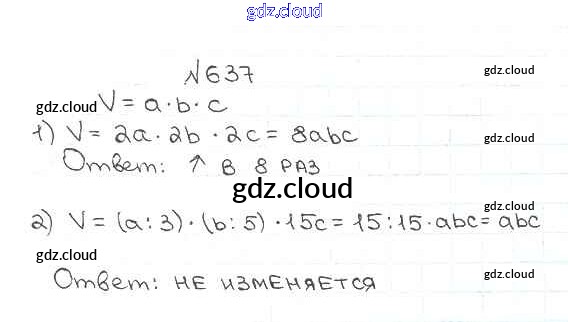 gdz.cloud
№637
gdz.cloud
gdz.cloud V = a·b·c
1) V = 2a · 2b · 2c = 8abc
gdz.cloud
Ответ: ↑ В 8 РАЗ
gdz.cloud
gdz.cloud
2) V = (a:3)·(b:5)·15c = 15:15·abc = abc
gdz.cloud
gdz.cloud
Ответ: НЕ ИЗМЕНЯЕТСЯ